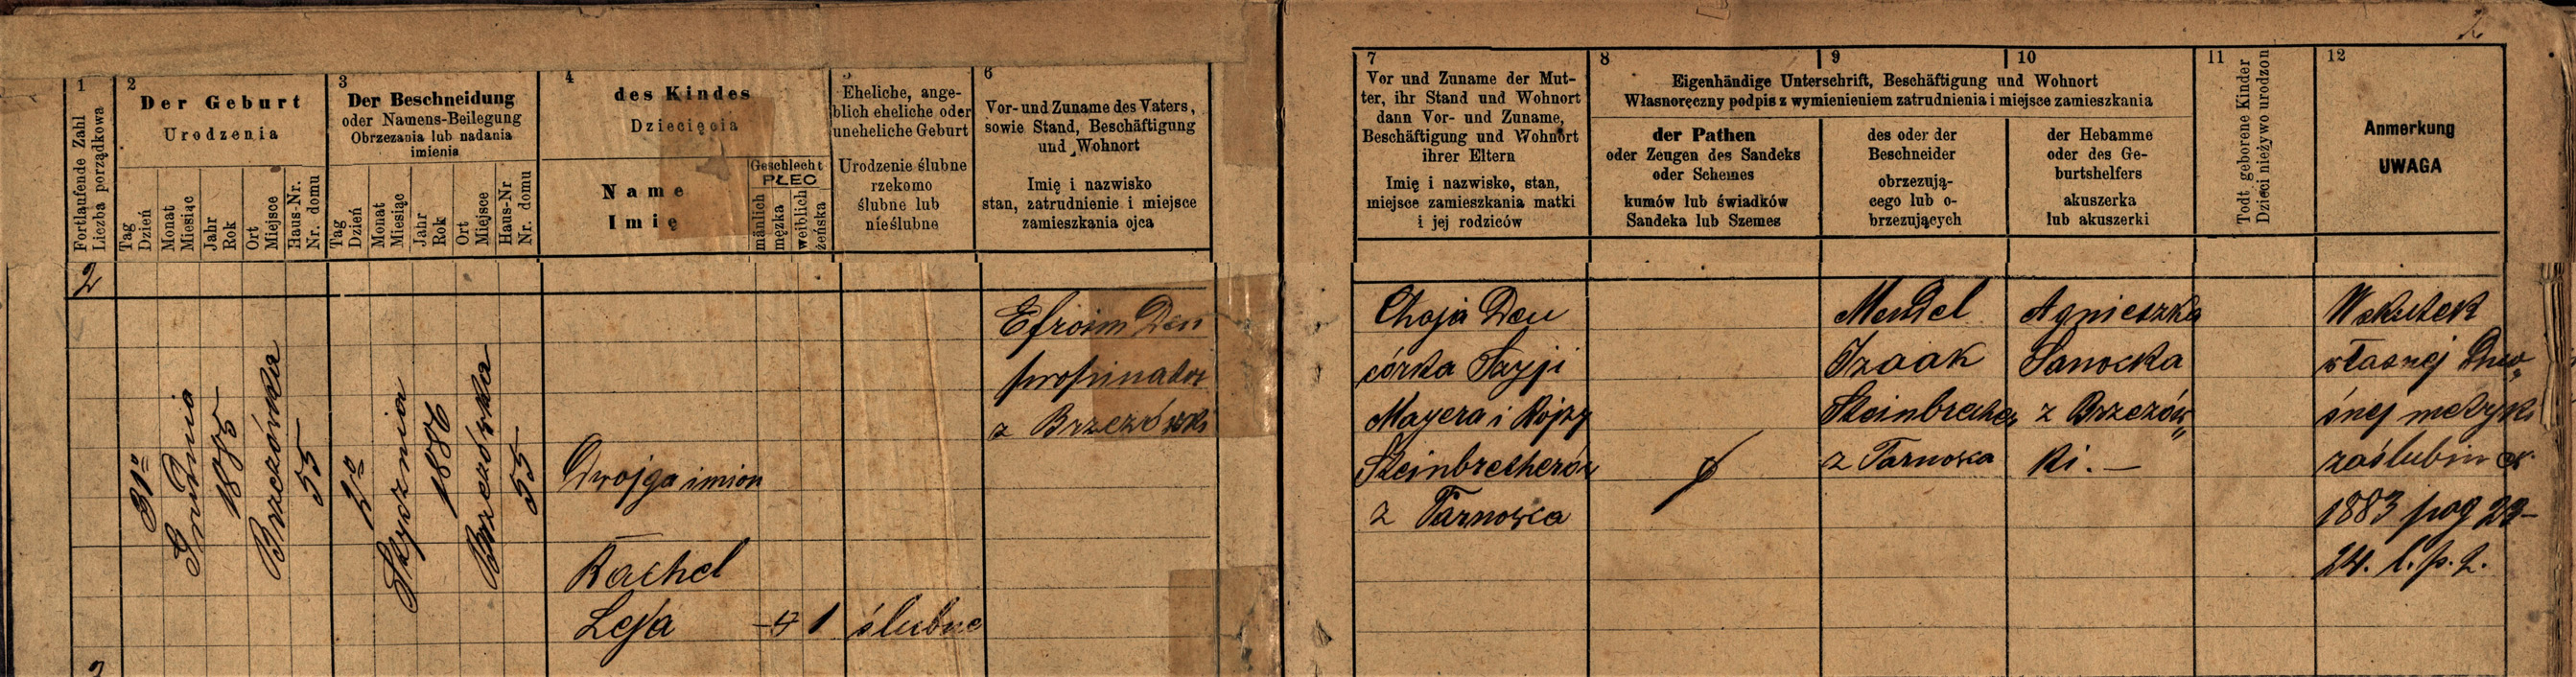 2
1
Fortlaufende Zahl
Liczba porządkowa
2
Der Geburt
Urodzenia
Tag
Dzień
Monat
Miesiąc
Jahr
Rok
Ort
Miejsce
Haus-Nr.
Nr. domu
3
Der Beschneidung
oder Namens-Beilegung
Obrzezania lub nadania
imienia
Tag
Dzień
Monat
Miesiąc
Jahr
Rok
Ort
Miejsce
Haus-Nr
Nr. domu
4
des Kindes
Dziecięcia
Name
Imię
Geschlecht
PŁEC
männlich
męzka
weiblich
żeńska
5
Eheliche, ange-
blich eheliche oder
uneheliche Geburt
Urodzenie ślubne
rzekomo
ślubne lub
nieślubne
6
Vor- und Zuname des Vaters,
sowie Stand, Beschäftigung
und Wohnort
Imię i nazwisko
stan, zatrudnienie i miejsce
zamieszkania ojca
7
Vor und Zuname der Mut-
ter, ihr Stand und Wohnort
dann Vor- und Zuname,
Beschäftigung und Wohnort
ihrer Eltern
Imię i nazwisko, stan,
miejsce zamieszkania matki
i jej rodziców
8
9
10
Eigenhändige Unterschrift, Beschäftigung und Wohnort
Własnoręczny podpis z wymienieniem zatrudnienia i miejsce zamieszkania
der Pathen
oder Zeugen des Sandeks
oder Schemes
kumów lub świadków
Sandeka lub Szemes
des oder der
Beschneider
obrzezują-
cego lub o-
brzezujących
der Hebamme
oder des Ge-
burtshelfers
akuszerka
lub akuszerki
11
Todt geborene Kinder
Dzieci nieżywo urodzon
12
Anmerkung
UWAGA
2
31o
Grudnia
1885
Brzezówka
55
2o
Stycznia
1886
Brzezówka
55
Dwojga imion
Rachel
Leja
1
ślubne
Efroim Den
propinator
z Brzezówki
Chaja Den
córka
Mayera i Rojzy
Steinbrecherów
z Tarnowca
Mendel
Izaak
Steinbrecher
z Tarnowca
Agnieszka
Sanocka
z Brzezów„
ki. —
Wskutek
własnej
metryki
zaślubin
1883 pag 23-
24. l. p. 2.